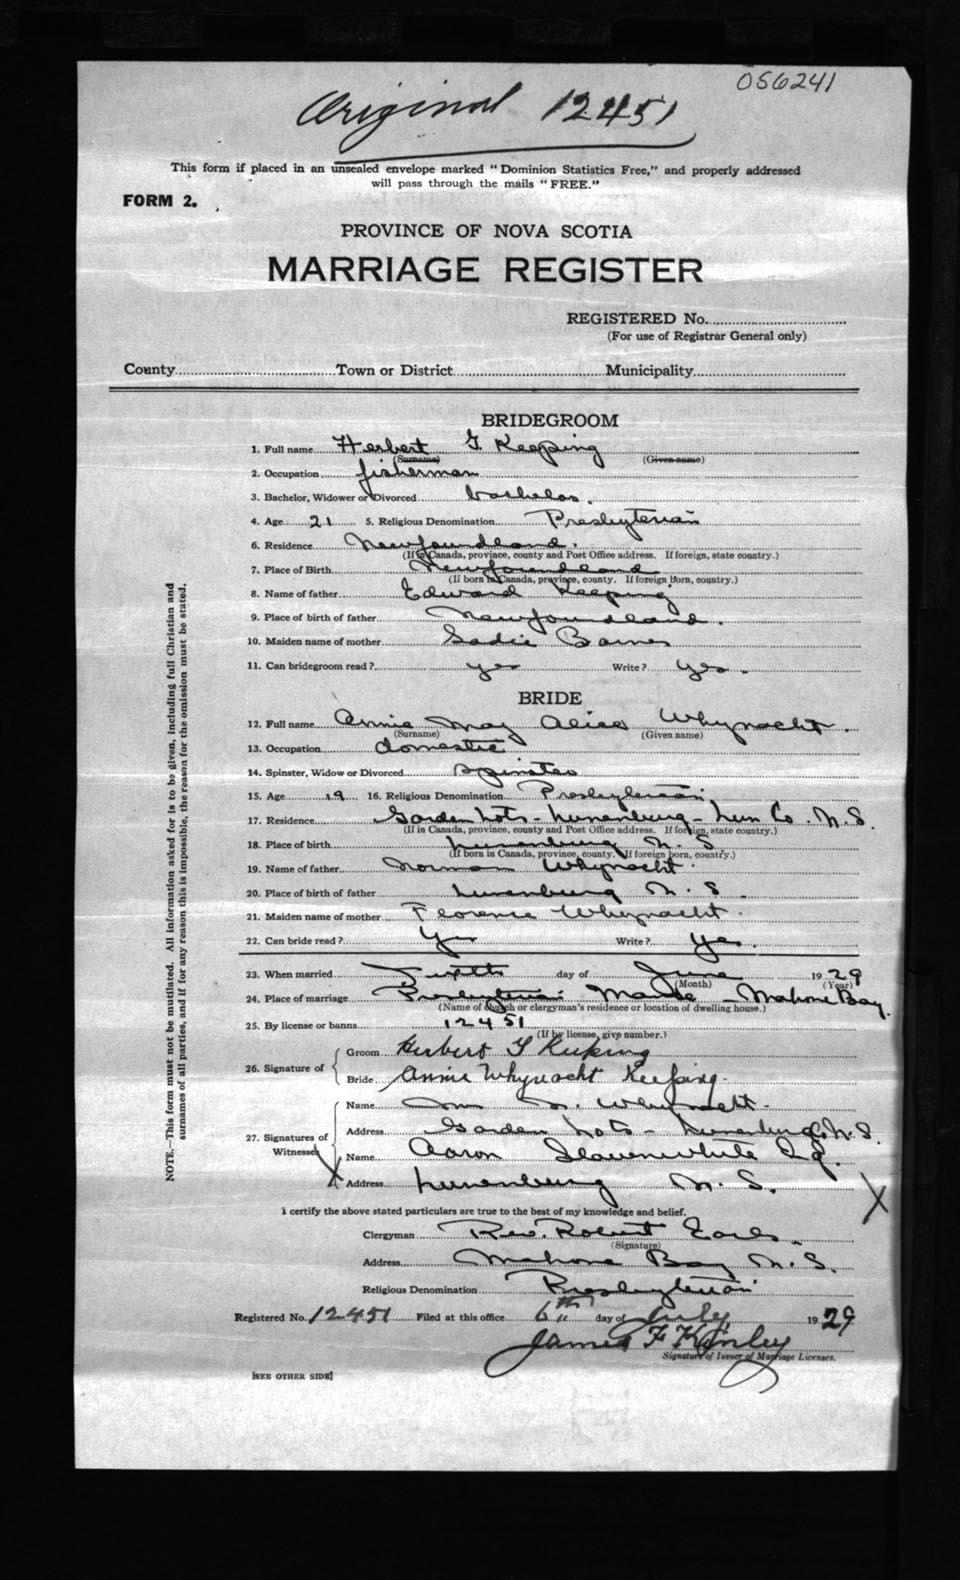 056241
Original 12451
This form if placed in an unsealed envelope marked "Dominion Statistics Free," and properly addressed
will pass through the mails "FREE."
FORM 2.
PROVINCE OF NOVA SCOTIA
MARRIAGE REGISTER
REGISTERED No.
(For use of Registrar General only)
County Town or District Municipality
BRIDEGROOM
1. Full name Herbert J Keeping
(Surname) (Given name)
2. Occupation fisherman
3. Bachelor, Widower or Divorced bachelor.
4. Age 21 5. Religious Denomination Presbyterian
6. Residence Newfoundland.
(If in Canada, province, county and Post Office address. If foreign, state country.)
7. Place of Birth Newfoundland
(If born in Canada, province, county. If foreign born, country.)
8. Name of father Edward Keeping
9. Place of birth of father Newfoundland.
10. Maiden name of mother Sadie Barnes
11. Can bridegroom read? yes Write? yes.
BRIDE
12. Full name Annie May Alice Whynacht.
(Surname) (Given name)
13. Occupation domestic
14. Spinster, Widow or Divorced spinster
15. Age 19 16. Religious Denomination Presbyterian
17. Residence Garden Lots - Lunenburg - Lun Co. N.S.
(If in Canada, province, county and Post Office address. If foreign, state country.)
18. Place of birth Lunenburg N. S
(If born in Canada, province, county. If foreign born, country.)
19. Name of father Norman Whynacht.
20. Place of birth of father Lunenburg N. S.
21. Maiden name of mother Florence Whynacht.
22. Can bride read? Yes Write? yes.
23. When married Sixth day of June 1929
(Month) (Year)
24. Place of marriage Presbyterian Manse - Mahone Bay.
(Name of church or clergyman's residence or location of dwelling house.)
25. By license or banns 12451
(If by license, give number.)
26. Signature of
Groom Herbert J Keeping
Bride Annie Whynacht Keeping.
27. Signatures of Witnesses
Name N. Whynacht.
Address Garden Lots - Lunenburg Co N.S.
Name Aaron Slauenwhite Esq.
Address Lunenburg N. S.
I certify the above stated particulars are true to the best of my knowledge and belief.
Clergyman Rev. Robert Earls.
(Signature)
Address Mahone Bay N. S.
Religious Denomination Presbyterian
Registered No. 12451 Filed at this office 6th day of July 1929
James F Kinley
Signature of Issuer of Marriage Licenses.
[SEE OTHER SIDE]
NOTE.—This form must not be mutilated. All information asked for is to be given, including full Christian and
surnames of all parties, and if for any reason this is impossible, the reason for the omission must be stated.